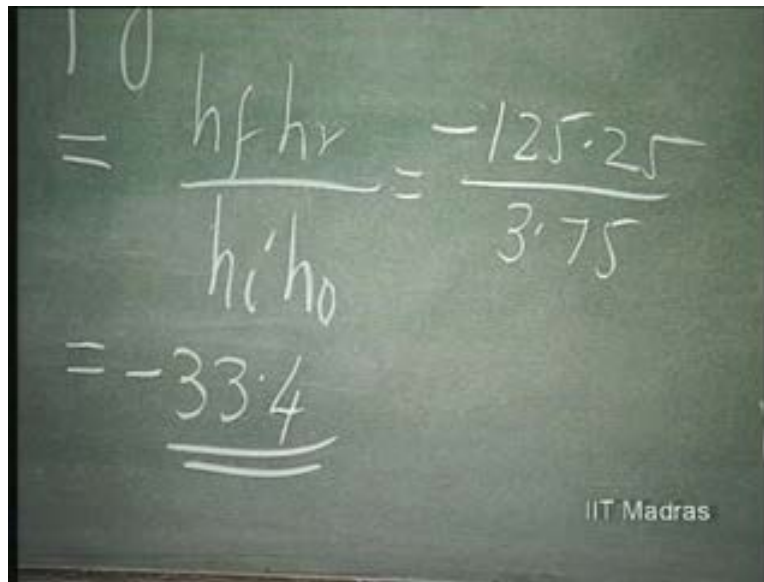 = hfhr / hiho = -125.25 / 3.75
= -33.4
IIT Madras